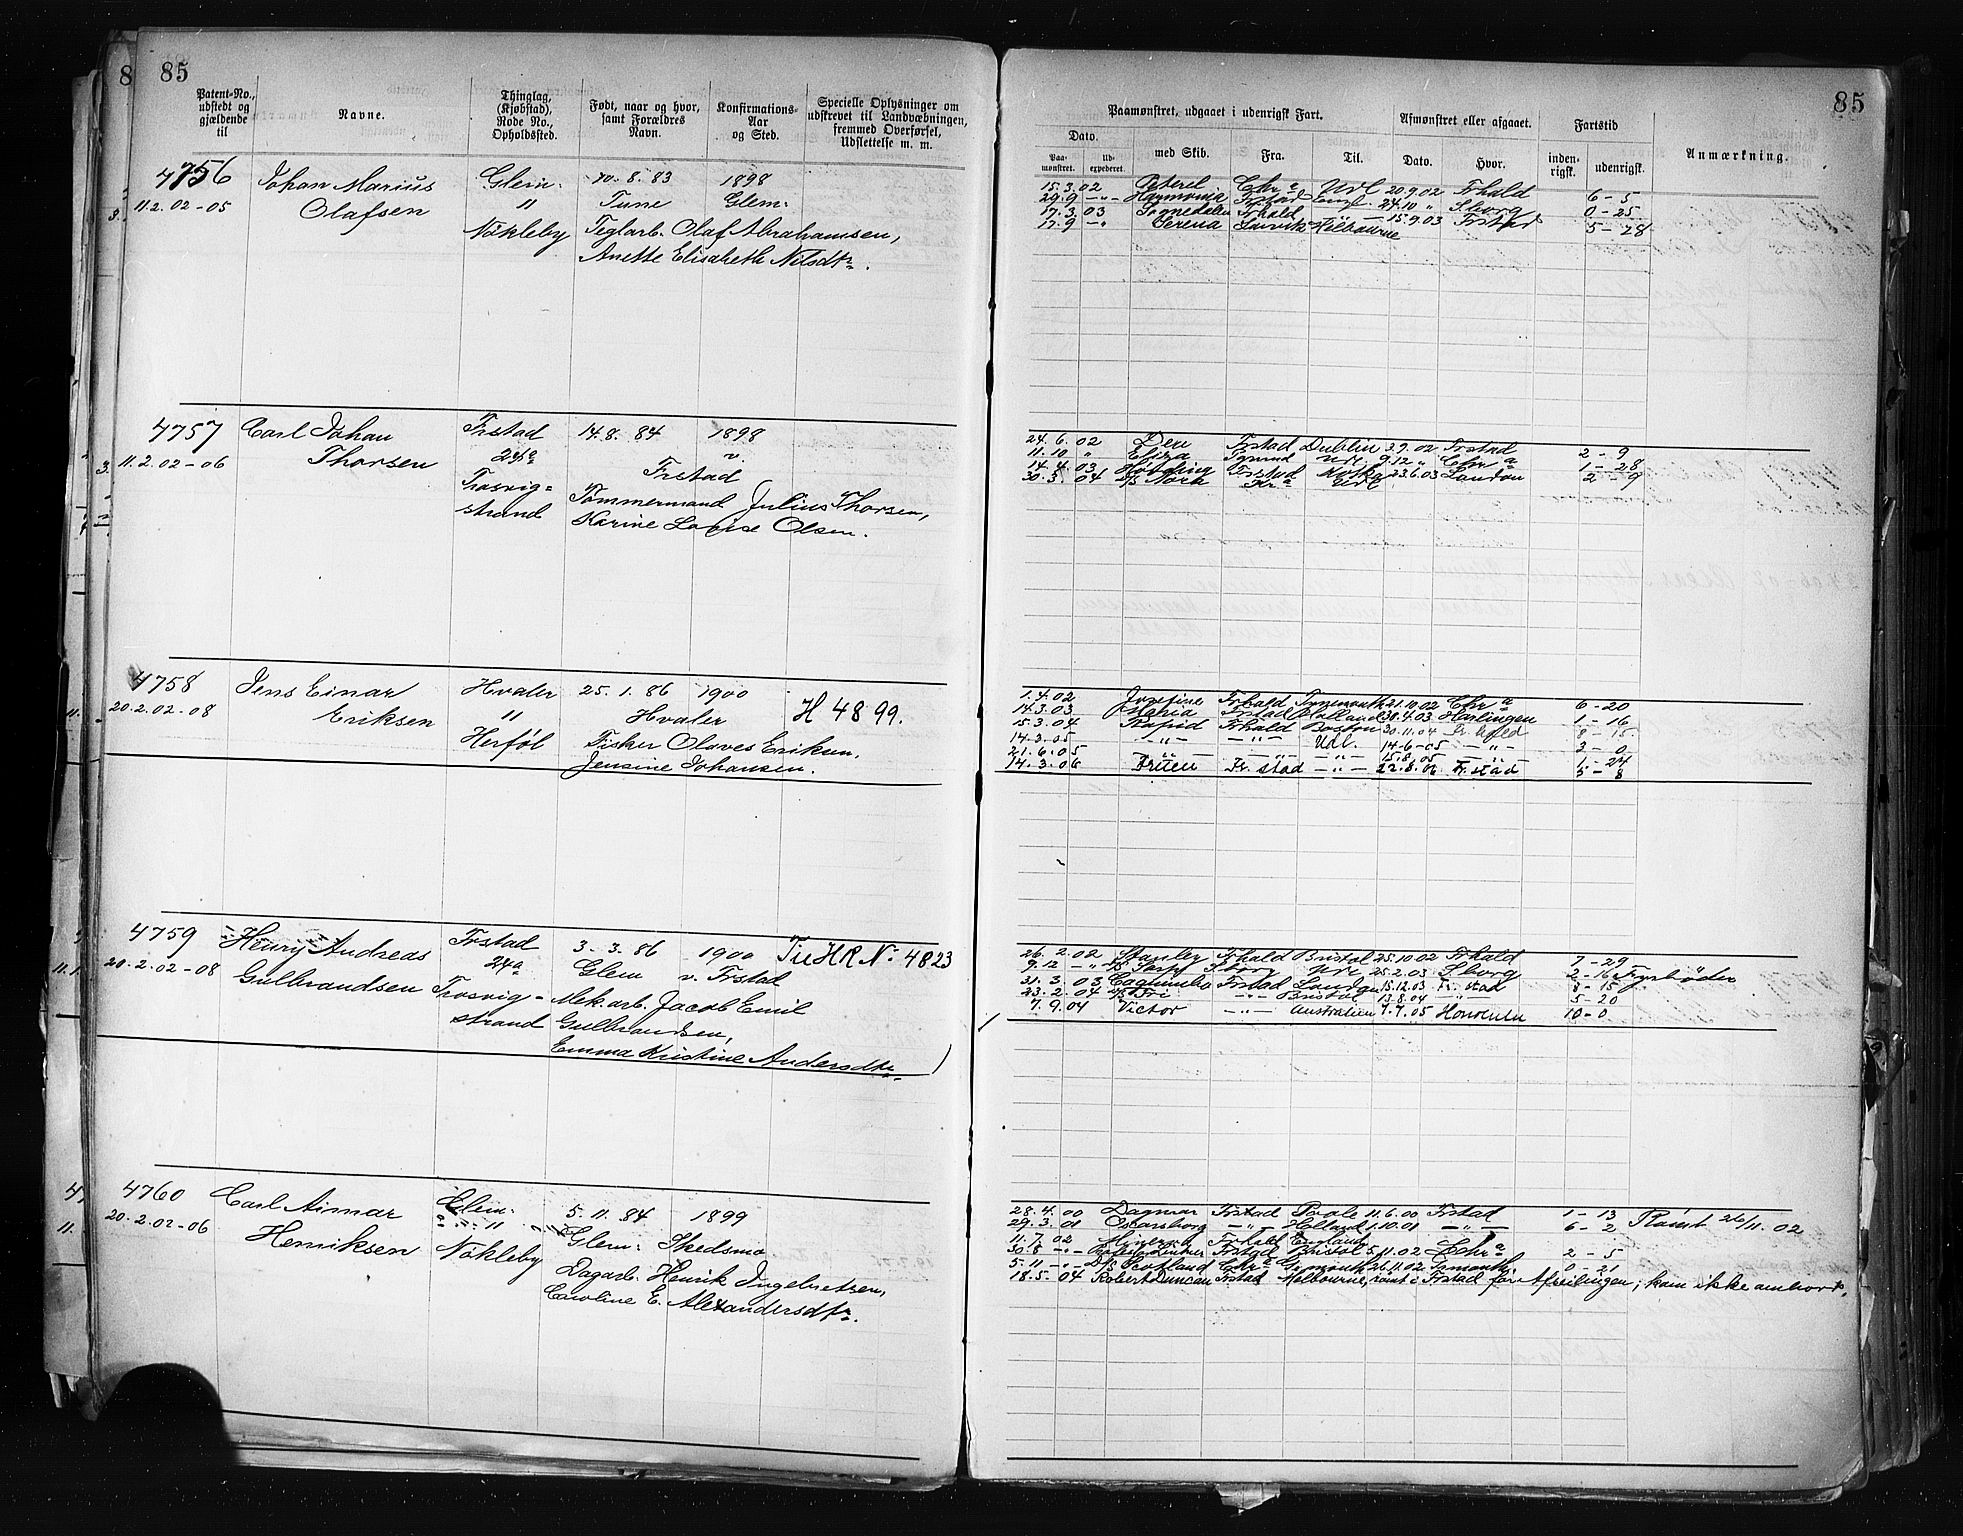 85
Patent-No., udstedt og gjældende til
Navne.
Thinglag, (Kjøbstad), Rode No., Opholdssted.
Født, naar og hvor, samt Forældres Navn.
Konfirmations-Aar og Sted.
Specielle Oplysninger om udskrevet til Landvæbningen, fremmed Overførsel, Udslettelse m. m.
4756 Johan Marius Glem: 10.8.83 1898
11.2.02-05 Olafsen " Tune Glem:
Nökleby Teglarb. Olaf Abrahamsen,
Anette Elisabeth Nilsdtr.
4757 Carl Johan Frstad 14.8.84 1898
11.2.02-06 Thorsen 24a v.
Trosvig= Frstad
strand Tømmermand Julius Thorsen,
Karine Lovise Olsen.
4758 Jens Einar Hvaler 25.1.86 1900 H 4899.
20.2.02-08 Eriksen " Hvaler
Herføl Fisker Olaves Eriksen,
Jensine Johansen.
4759 Henry Andreas Frstad 3.3.86 1900 Til HR No 4823
20.2.02-08 Gulbrandsen 24a Glem v. Frstad
Trosvig= Mek.arb. Jacob Emil
strand Gulbrandsen,
Emma Kristine Andersdtr.
4760 Carl Aimar Glem: 5.11.84 1899
20.2.02-06 Henriksen " Glem: Skedsmo
Nökleby Dagarb. Henrik Ingebretsen,
Caroline E. Alexandersdtr.
85
Paamønstret, udgaaet i udenrigsk Fart.
Afmønstret eller afgaaet.
Fartstid
Anmærkning.
Dato.
Paa-mønstret.
Ud-expederet.
med Skib.
Fra.
Til.
Dato.
Hvor.
inden-rigsk.
udenrigsk.
15.3.02 Peterel Chra Udl 20.9.02 Frhald 6-5
29.9 -"- Harmonia Frstad 24.10 " Sborg 0-25
17.3.03 Frhald -"- 15.9.03 Frstad 5-28
17.9 -" Serena Larvik Melbourne
24.6.02 Frstad Dublin 3.9.02 Frstad 2-9
11.10 " Eliza Udl. 9.12 " Chra 1-28
14.4.03 Høvding Frstad 23.6.03 London 2-9
30.5.04 D/S Nora Kra Udl
1.4.02 Josefine Frhald Tynemouth 21.10.02 Chra 6-20
14.3.03 Maria Frstad Holland 30.4.03 Harlingen 1-16
15.3.04 Rapid Frhald Boston 30.11.04 8-15
14.3.05 -"- -"- Udl. 14-6-05 -"- 3-0
21.6.05 -"- -"- -"- 15.8.05 -"- 1-24
14.3.06 Fruen Fr.stad -"- 22.8.06 Fr.stad 5-8
26.2.02 Stanley Frhald Bristol 25.10.02 Frhald 7-29
9.12 -"- D/S Sarp Sborg Udl 25.2.03 Sborg 2-16 Fyrbøder
31.3.03 Frstad London 15.12.03 Fr.stad 8-15
23.2.04 -"- Bristol 13.8.04 -"- 5-20
7.9.04 Victor -"- Australien 7.7.05 Honolulu 10-0
28.4.00 Dagmar Frstad 11.6.00 Frstad 1-13
29.3.01 Oscarsborg -"- Holland 1.10.01 -"- 6-2 Rømt 26/11.02
11.7.02 Minerva Frhald England
30.8 -"- Frstad Bristol 5.11.02 Chra 2-5
5.11 -"- D/S Scotland Chra Tynmouth 26.11.02 Tynmouth 0-21
18.5.04 Robert Duncan Frstad Melbourne, rømt i Frstad før Afseilingen, kom ikke ombord.